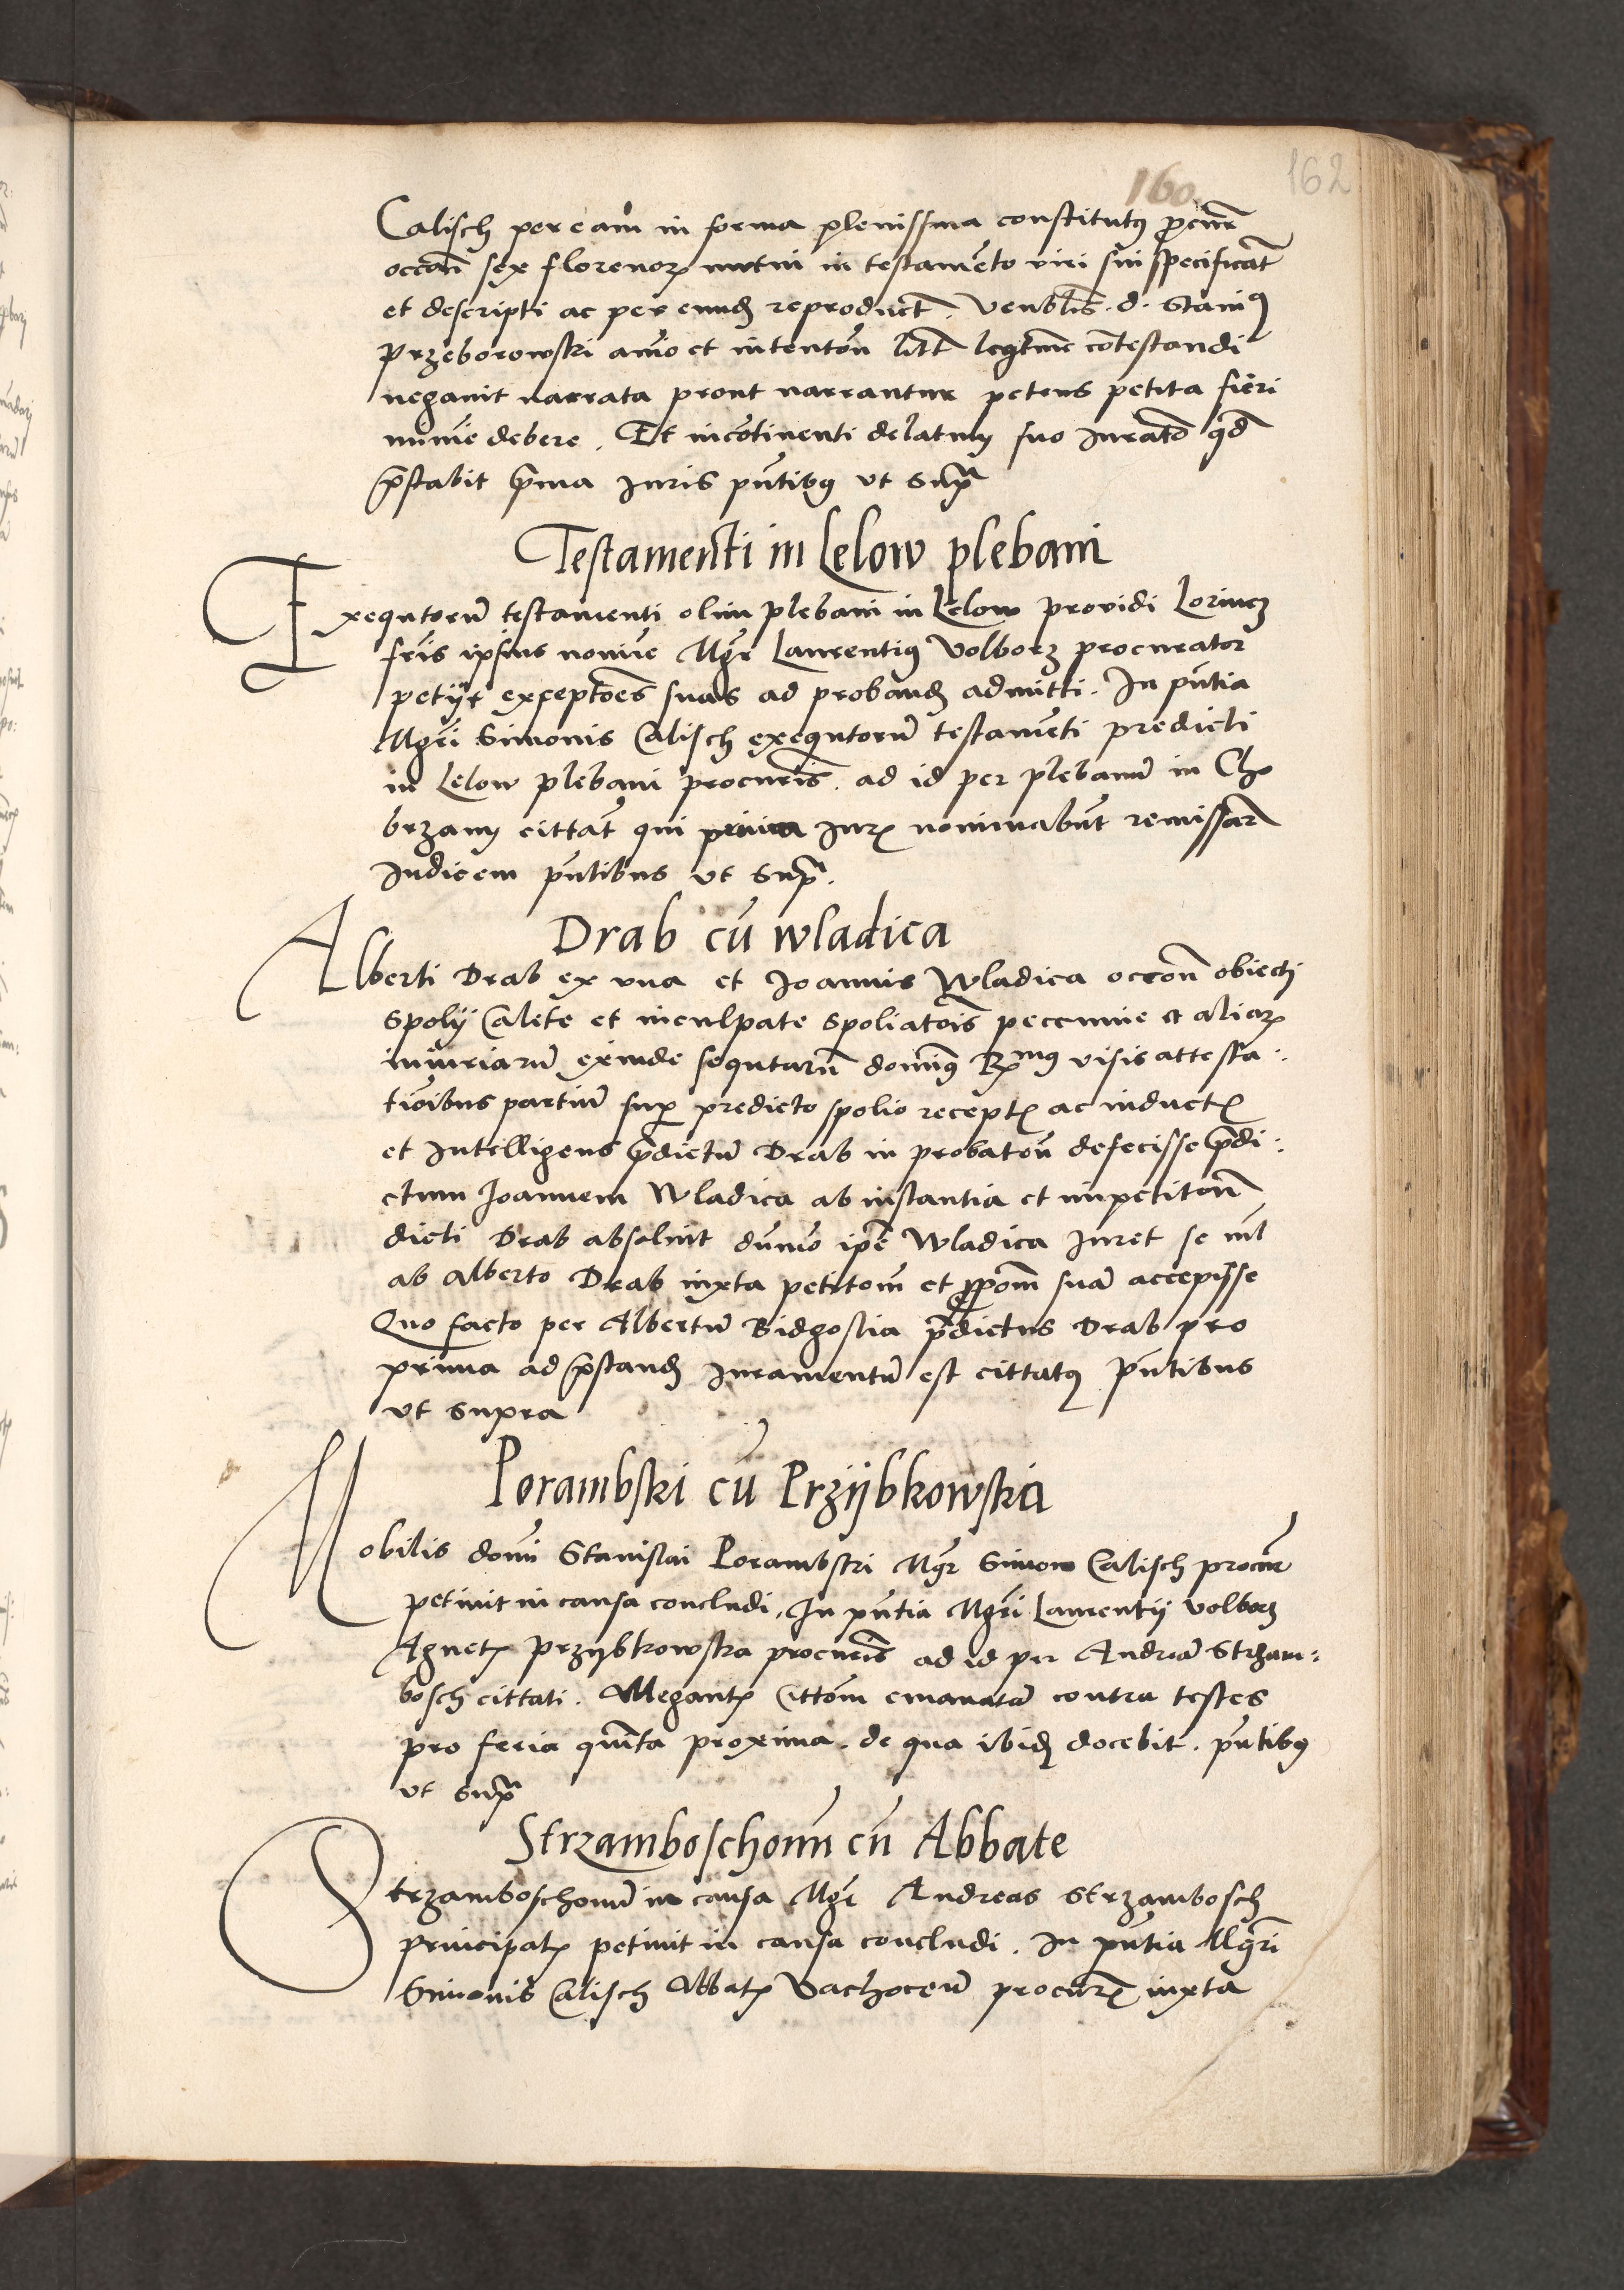 160
162
Calisch per eam in forma plenissima constitutꝯ ꝓcur̄
occon̄ sex florenoꝝ mutui in testamēto viri sui specificat̄
et descripti ac per eund̄ reproduct̄. Venblis. d. Stanis
Przeborowski aīo et intentōn litt̄ legitīme cōtestandi
negauit narrata prout narrantur petens petita fieri
minīe debere. Et incōtinenti delatum suo Iuratō qd̄
p̄stabit p̄ma Iuris pn̄tibꝯ vt Sup̄
Testamenti in Lelow plebani
Exequtorū testamenti olim plebani in Lelow prouidi Lorincz
fr̄is ipsius nomīe Mgr̄ Laurentiꝯ Volborz procurator
petijt exceptōes suas ad proband̄ admitti. In pn̄tia
Mgr̄i Simonis Calisch exequtorū testamēti predicti
in Lelow plebani procur̄is. ad id per plebanū in Cho
brzany cittat̄ qui prima Iurꝭ nominabūt remissar̄
Iudicem pn̄tibus vt Sup̄.
Drab cū wladica
Alberti Drab ex vna et Ioannis Wladica occon̄ obiecti
Spolij Calete et inculpate Spoliatōis pecunie et aliaꝝ
iniuriarū exinde sequtarū dominꝯ Rmꝯ visis attesta:
tiōibus partiū sup̄ predicto spolio receptꝭ ac inductꝭ
et Intelligens p̄dictū Drab in probatōn defecisse p̄di:
ctum Ioannem Wladica ab instantia et impetitōn
dicti Drab absoluit dūmō ip̄e Wladica Iuret se nil
ab Alberto Drab iuxta petitōm et ꝓpōm suā accepisse
Quo facto per Albertū Bidgostia p̄dictus Drab pro
prima ad p̄stand̄ Iuramentū est cittatꝯ pn̄tibus
vt supra
Porambski cū Przijbkowska
Nobilis domī Stanislai Porambski Mgr̄ Simon Calisch procur̄
petiuit in causa concludi. In pn̄tia Mgr̄i Laurentij Volborz
Agnetꝭ Przijbkowska procur̄is ad id per Andreā Strzam:
bosch cittati. Allegantꝭ Cittōm emanatā contra testes
pro feria quīta proxima. de qua ibid̄ docebit. pn̄tibꝯ
vt Sup̄
Strzamboschonū cū Abbate
Strzamboschonū in causa Mgr̄ Andreas Strzambosch
principalꝭ petiuit in causa concludi. In pn̄tia Mgr̄i
Simonis Calisch Abbatꝭ Vachocen̄ procur̄ꝭ iuxta